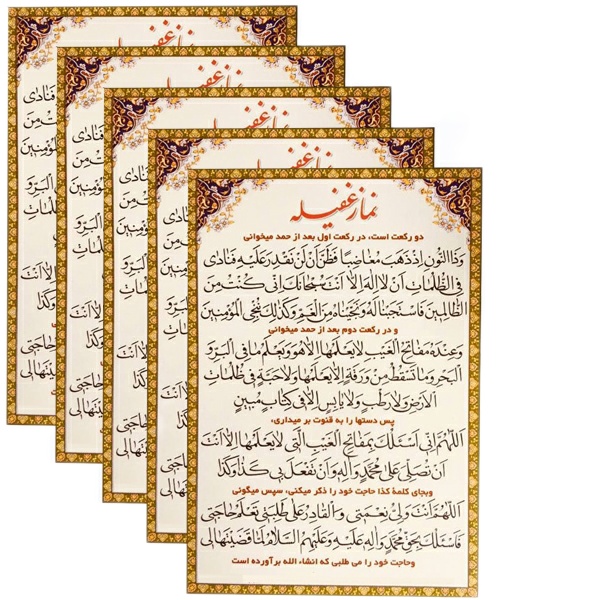 نماز غفیله
دو رکعت است، در رکعت اول بعد از حمد میخوانی
وَذَا النُّونِ اِذْ ذَهَبَ مُغاضِبًا فَظَنَّ اَنْ لَنْ نَقْدِرَ عَلَیْهِ فَنَادٰی
فِی الظُّلُمَاتِ اَنْ لَا اِلٰهَ اِلَّا اَنْتَ سُبْحَانَكَ اِنِّی کُنْتُ مِنَ
الظَّالِمِینَ فَاسْتَجَبْنَا لَهُ وَنَجَّیْنَاهُ مِنَ الْغَمِّ وَکَذٰلِكَ نُنْجِی الْمُؤْمِنِینَ
و در رکعت دوم بعد از حمد میخوانی
وَعِنْدَهُ مَفَاتِحُ الْغَیْبِ لَا یَعْلَمُهَا اِلَّا هُوَ وَیَعْلَمُ مَا فِی الْبَرِّ وَ
الْبَحْرِ وَمَا تَسْقُطُ مِنْ وَرَقَةٍ اِلَّا یَعْلَمُهَا وَلَا حَبَّةٍ فِی ظُلُمَاتِ
الْاَرْضِ وَلَا رَطْبٍ وَلَا یَابِسٍ اِلَّا فِی کِتَابٍ مُبِینٍ
پس دستها را به قنوت بر میداری،
اَللّٰهُمَّ اِنِّی اَسْئَلُكَ بِمَفَاتِحِ الْغَیْبِ الَّتِی لَا یَعْلَمُهَا اِلَّا اَنْتَ
اَنْ تُصَلِّیَ عَلٰی مُحَمَّدٍ وَآلِهِ وَاَنْ تَفْعَلَ بِی کَذَا وَکَذَا
وبجای کلمهٔ کذا حاجت خود را ذکر میکنی، سپس میگوئی
اَللّٰهُمَّ اَنْتَ وَلِیُّ نِعْمَتِی وَالْقَادِرُ عَلٰی طَلِبَتِی تَعْلَمُ حَاجَتِی
فَاَسْئَلُكَ بِحَقِّ مُحَمَّدٍ وَآلِهِ عَلَیْهِ وَعَلَیْهِمُ السَّلَامُ لَمَّا قَضَیْتَهَا لِی
وحاجت خود را می طلبی که انشاء الله برآورده است